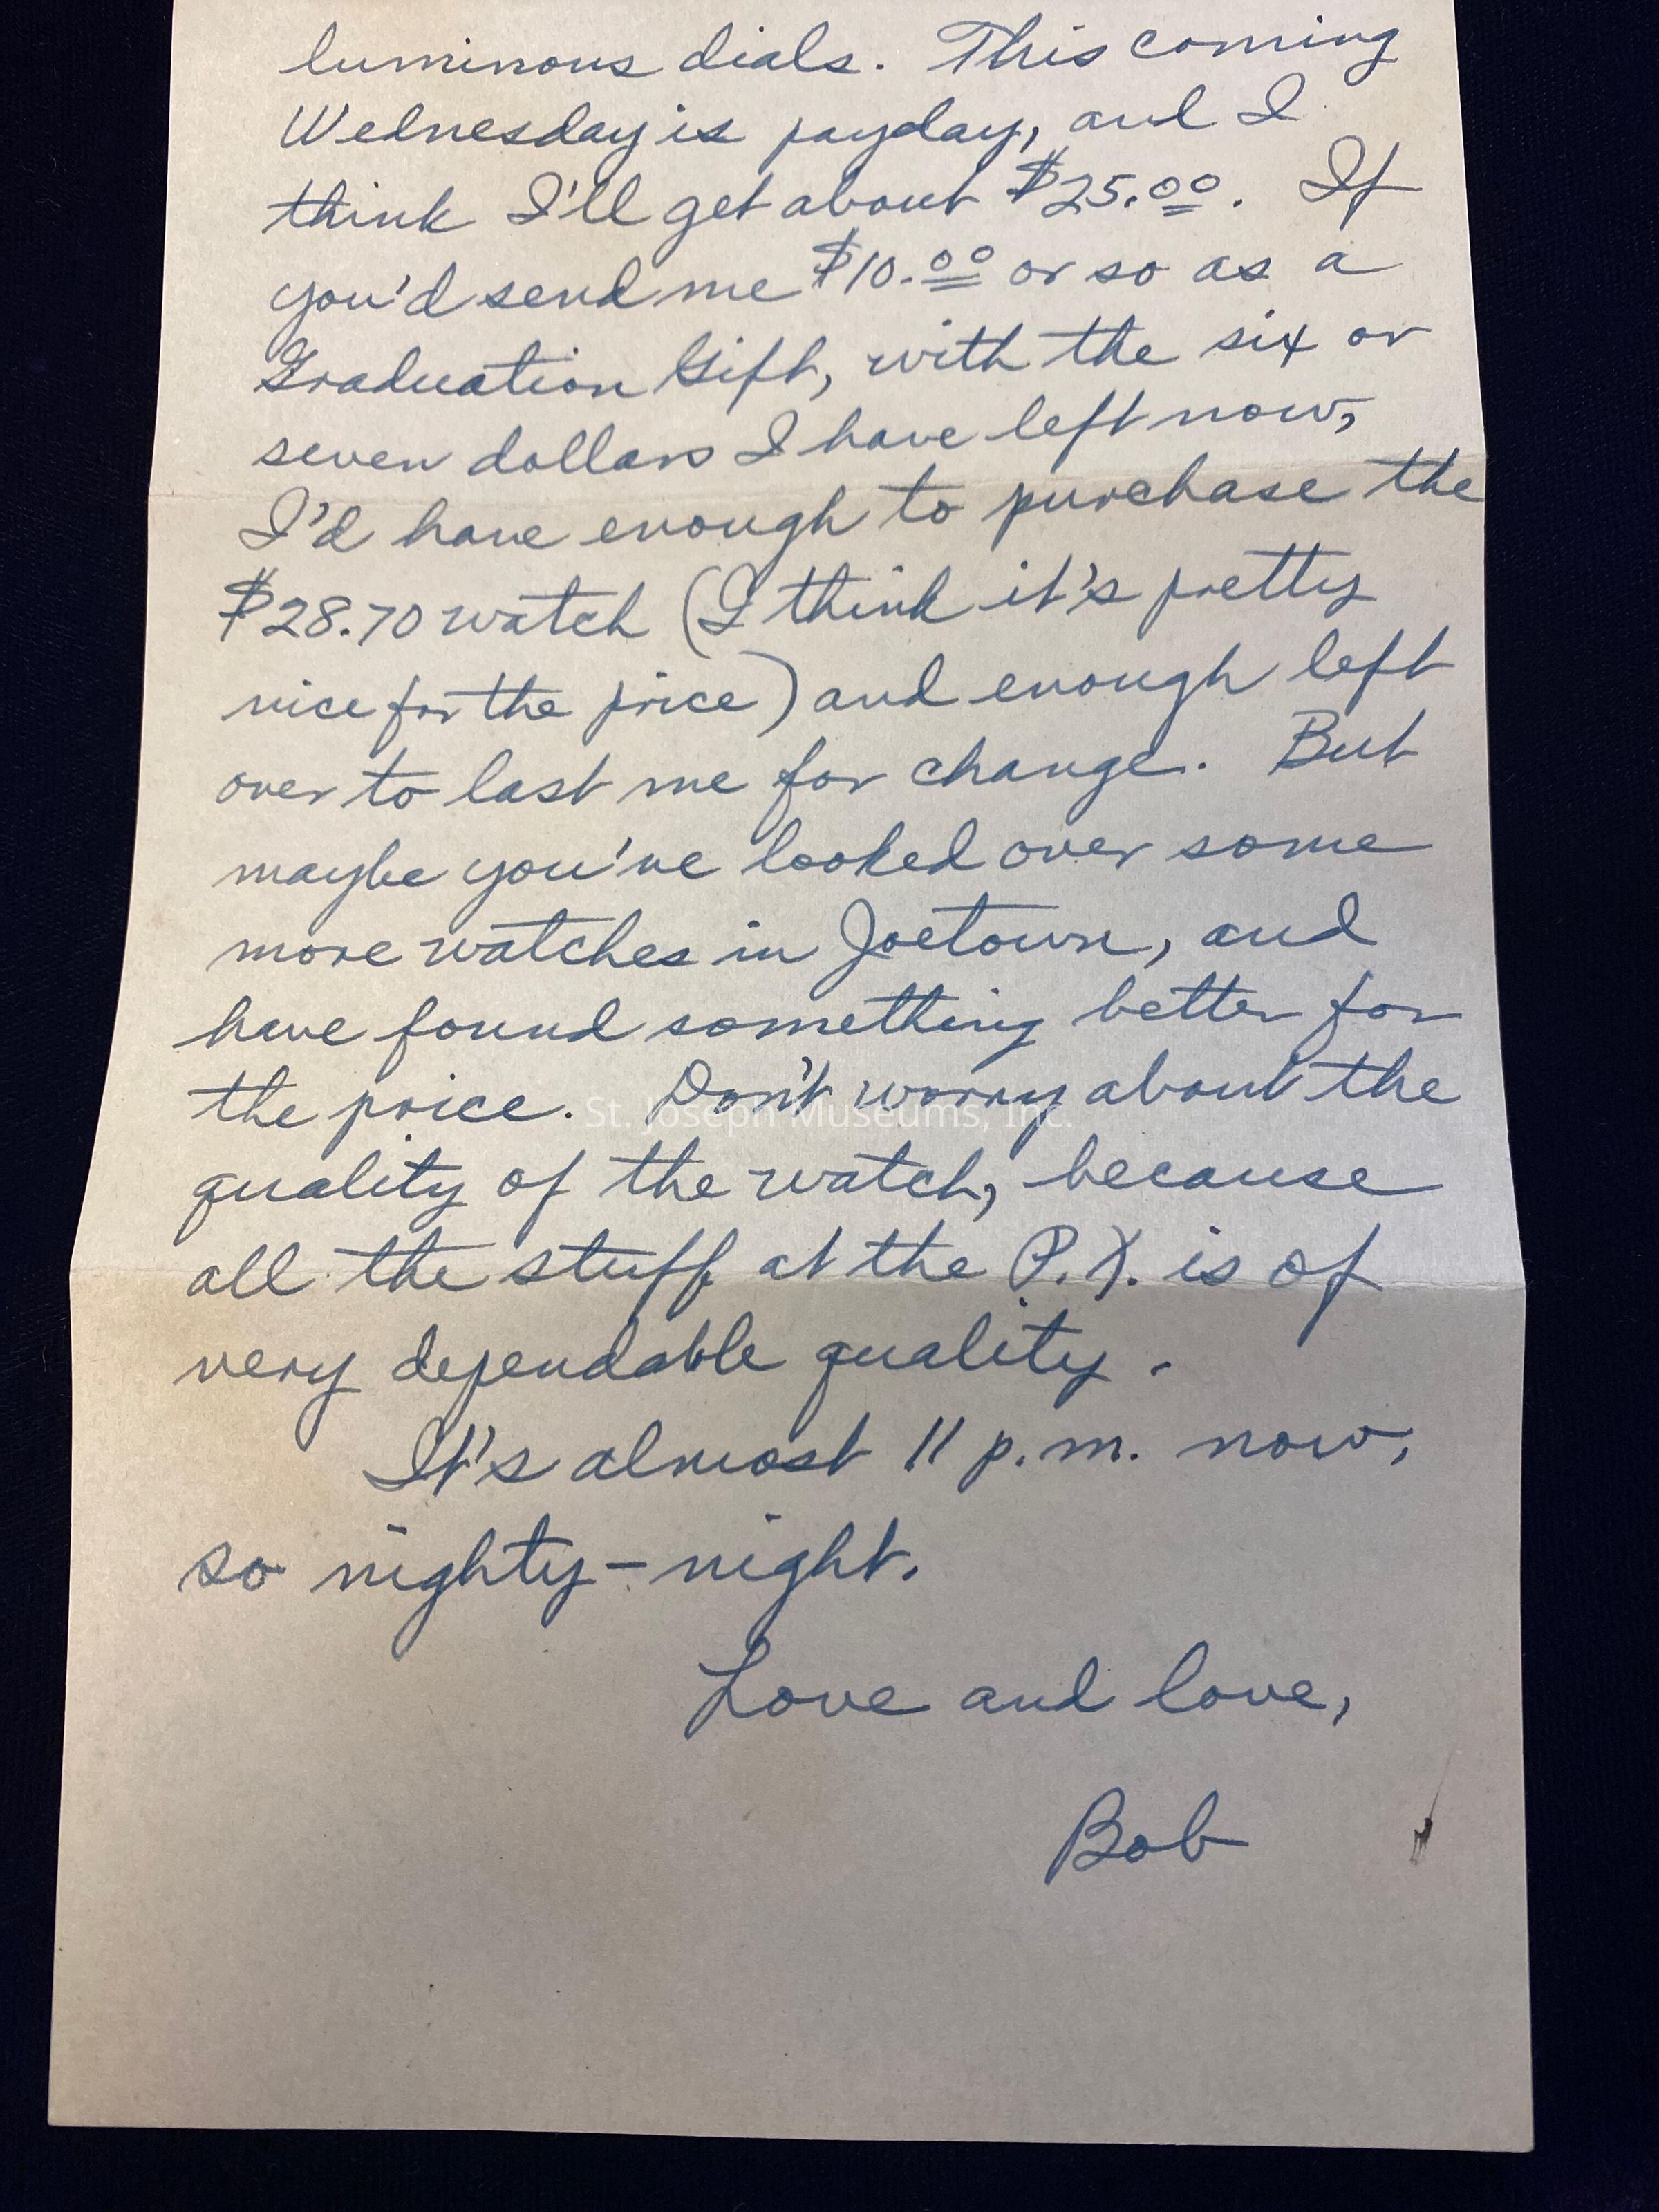 luminous dials. This coming
Wednesday is payday, and I
think I'll get about $25.00. If
you'd send me $10.00 or so as a
Graduation Gift, with the six or
seven dollars I have left now,
I'd have enough to purchase the
$28.70 watch (I think it's pretty
nice for the price) and enough left
over to last me for change. But
maybe you've looked over some
more watches in Joetown, and
have found something better for
the price. Don't worry about the
St. Joseph Museums, Inc.
quality of the watch, because
all the stuff at the P.X. is of
very dependable quality.
It's almost 11 p.m. now,
so nighty-night.
Love and love,
Bob